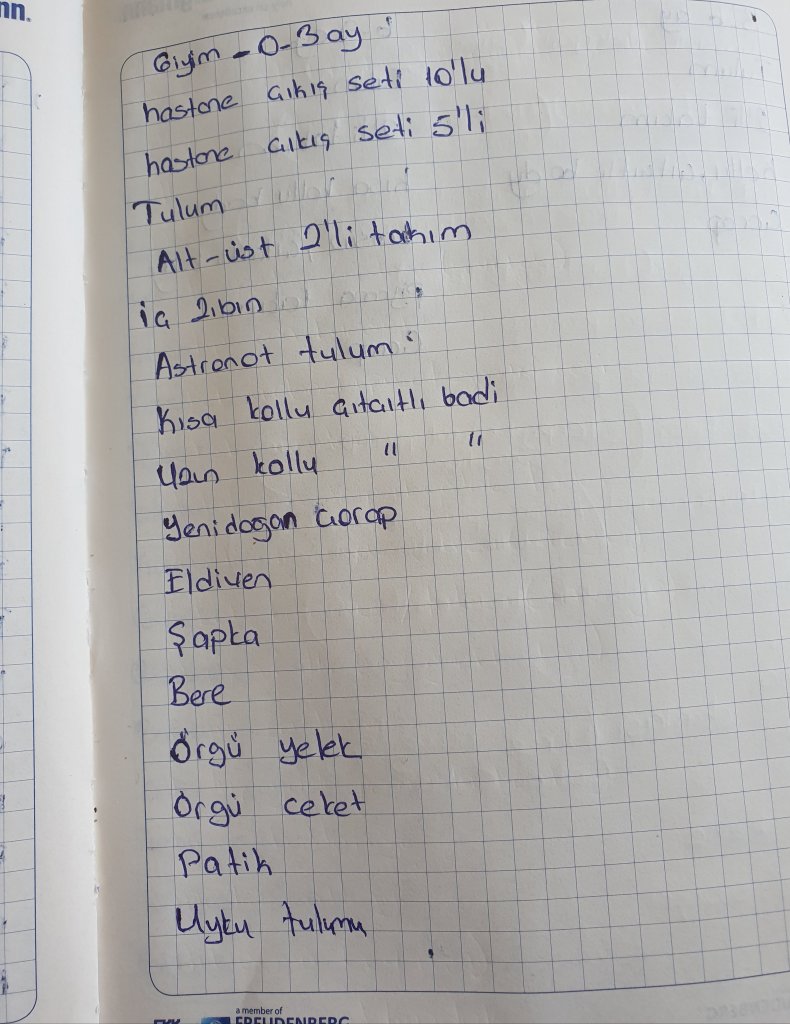 nn.
Giyim - 0-3 ay
hastane çıkış seti 10'lu
hastane çıkış seti 5'li
Tulum
Alt-üst 2'li takım
iç zıbın
Astronot tulum
Kısa kollu çıtçıtlı badi
Uzun kollu " "
Yenidoğan Çorap
Eldiven
Şapka
Bere
Örgü yelek
Örgü ceket
Patik
Uyku tulumu
a member of
FREUDENBERG